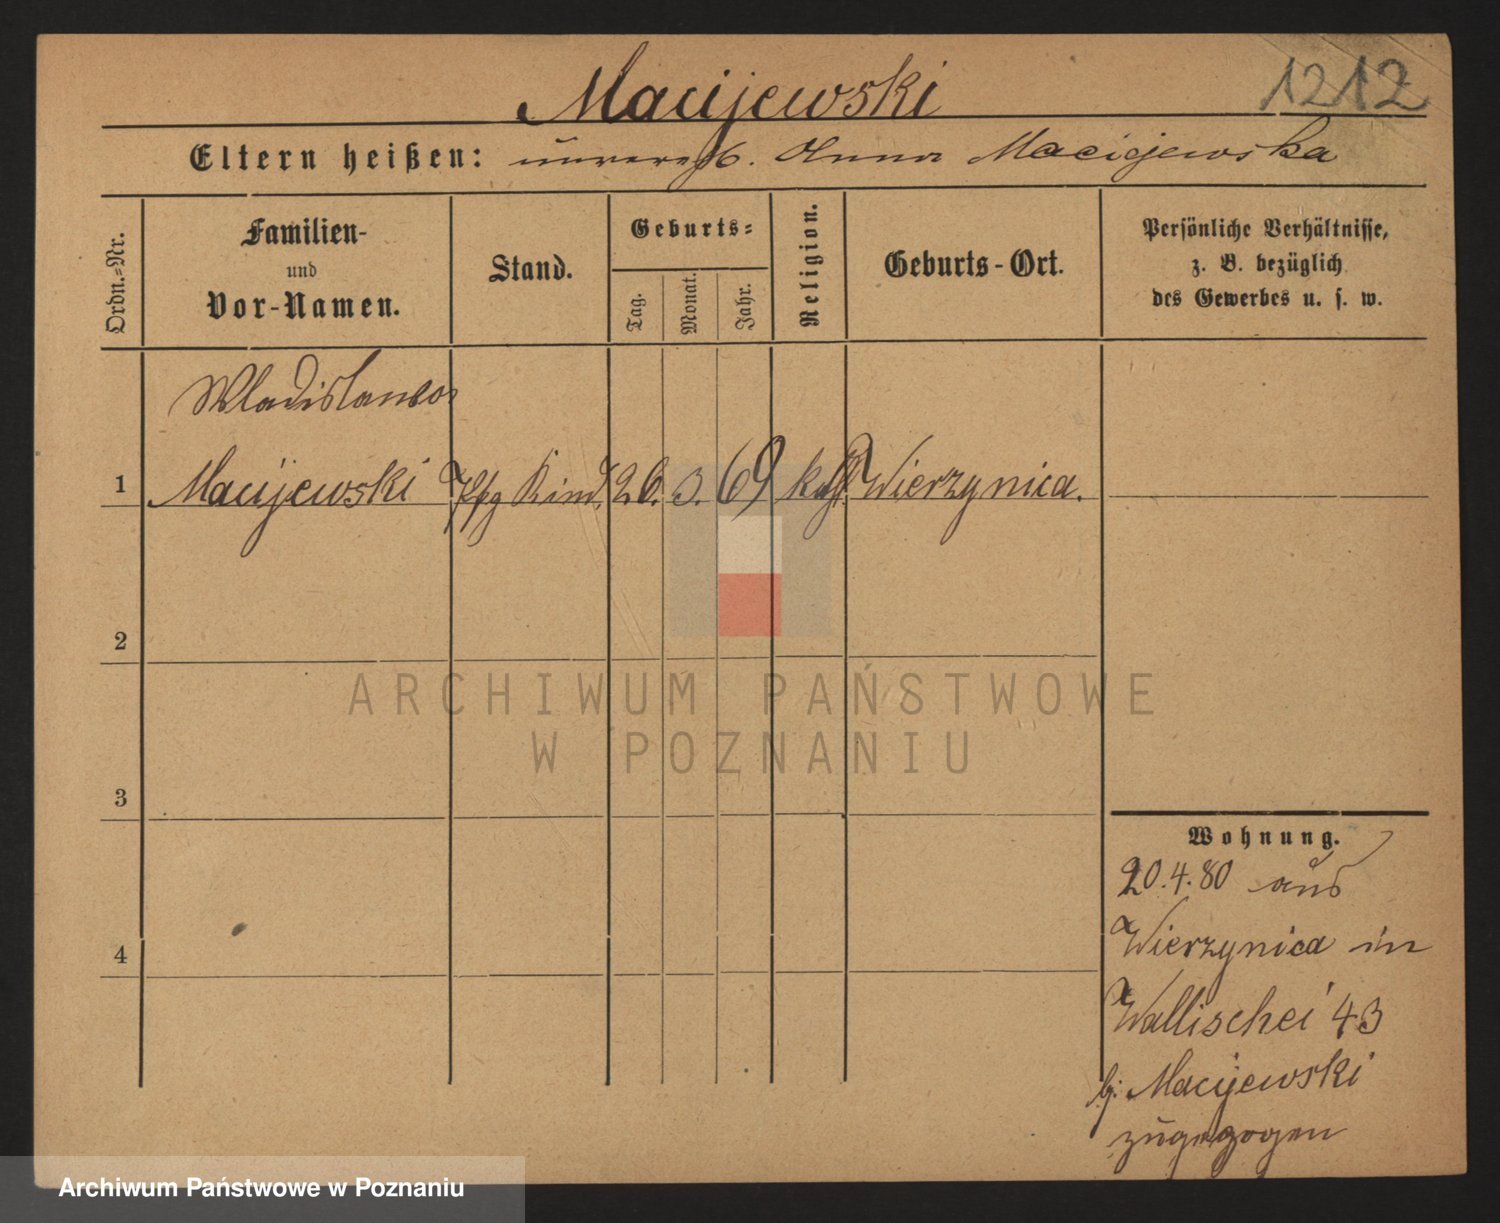 1212
Macijewski
Eltern heißen: unvereh. Anna Maciejewska
Ordn.=Nr.
Familien-
und
Vor-Namen.
Stand.
Geburts=
Tag.
Monat.
Jahr.
Religion.
Geburts-Ort.
Persönliche Verhältnisse,
z. B. bezüglich
des Gewerbes u. s. w.
Wladislaus
1 Macijewski Pflg Kind. 26. 3. 69 kath. Wierzynica.
2
3
4
Wohnung.
20.4.80 aus
Wierzynica in
Wallischei 43
bj. Macijewski
zugezogen
ARCHIWUM PAŃSTWOWE
W POZNANIU
Archiwum Państwowe w Poznaniu